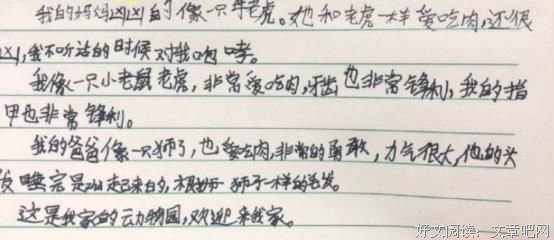 我的妈妈凶凶的像一只母老虎。她和老虎一样爱吃肉,还很
凶,我不听话的时候对我咆哮。
我像一只小老鼠老虎,非常爱吃肉,牙齿也非常锋利,我的指
甲也非常锋利。
我的爸爸像一只狮子,也爱吃肉,非常的勇敢,力气很大,他的头
发睡完是 起来的,根 狮子一样的毛发。
这是我家的动物园,欢迎来我家。
好文阅读:文章吧网